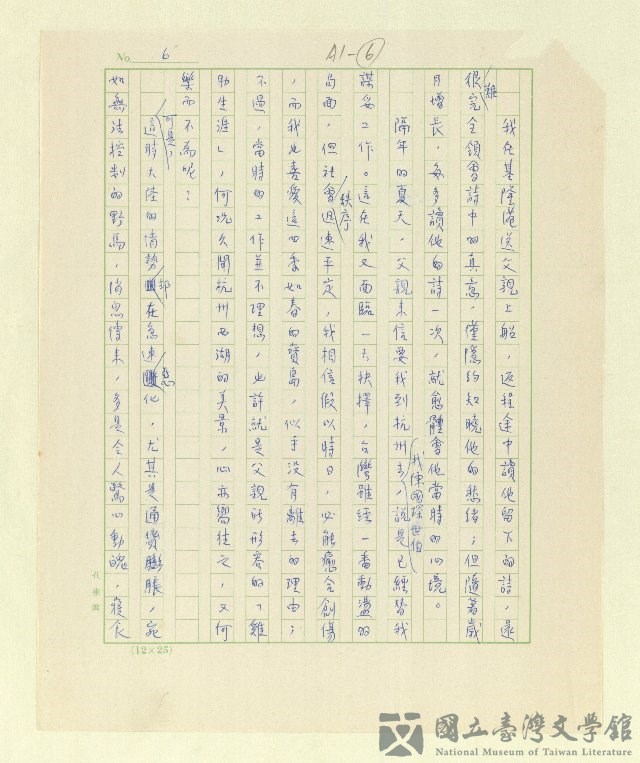 No. 6
A1-6
我在基隆港送父親上船,返程途中讀他留下的詩,還
很難完全領會詩中的真意,僅隱約知曉他的悲緒;但隨著歲
月增長,每多讀他的詩一次,就愈體會他當時的心境。
隔年的夏天,父親來信要我到杭州去,說是已經替我
(我陳國琛世伯)
謀妥工作。這在我又面臨一去抉擇,台灣雖經一番動盪的
局面,但社會秩序迅速平定,我相信假以時日,必能癒合創傷
,而我也喜愛這四季如春的寶島,似乎沒有離去的理由;
不過,當時的工作並不理想,也許就是父親所形容的「雞
肋生涯」,何況久聞杭州西湖的美景,心亦嚮往之,又何
樂而不為呢?
可是,這時大陸的情勢卻在急速惡化,尤其是通貨膨脹,宛
如無法控制的野馬,消息傳來,多是令人驚心動魄,寢食
(12×25)
國立臺灣文學館
National Museum of Taiwan Literature